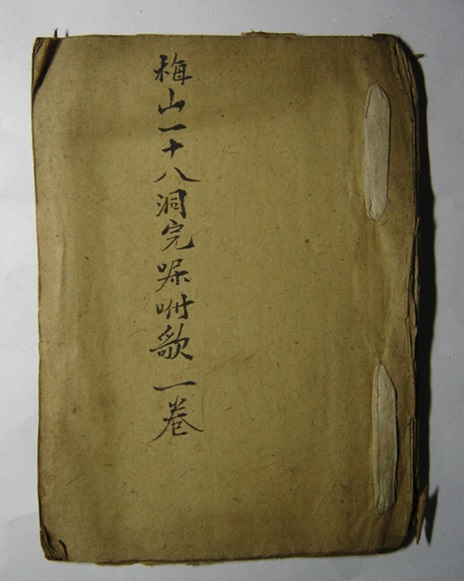 梅山一十八洞完㖼咐歌一卷